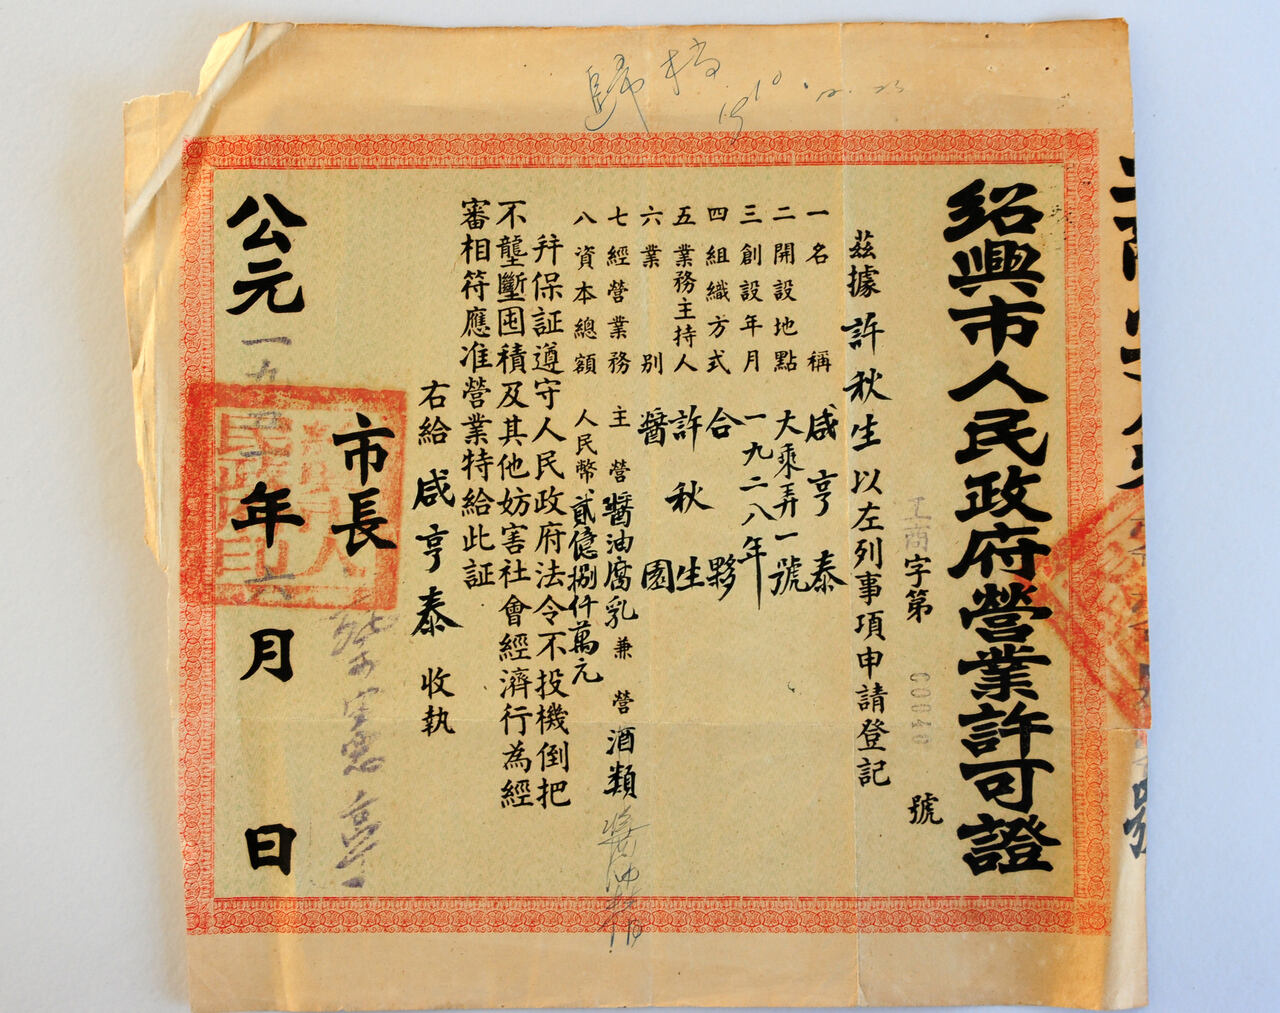 歸档
紹興市人民政府營業許可證
工商字第 00040 號
茲據許秋生以左列事項申請登記
一名稱 咸亨泰
二開設地點 大乘弄一號
三創設年月 一九二八年
四組織方式 合夥
五業務主持人 許秋生
六業別 醬園
七經營業務 主營醬油腐乳兼營酒類
八資本總額 人民幣貳億捌仟萬元
并保証遵守人民政府法令不投機倒把
不壟斷囤積及其他妨害社會經濟行為經
審相符應准營業特給此証
右給咸亨泰收執
市長
公元一九五 年六月 日